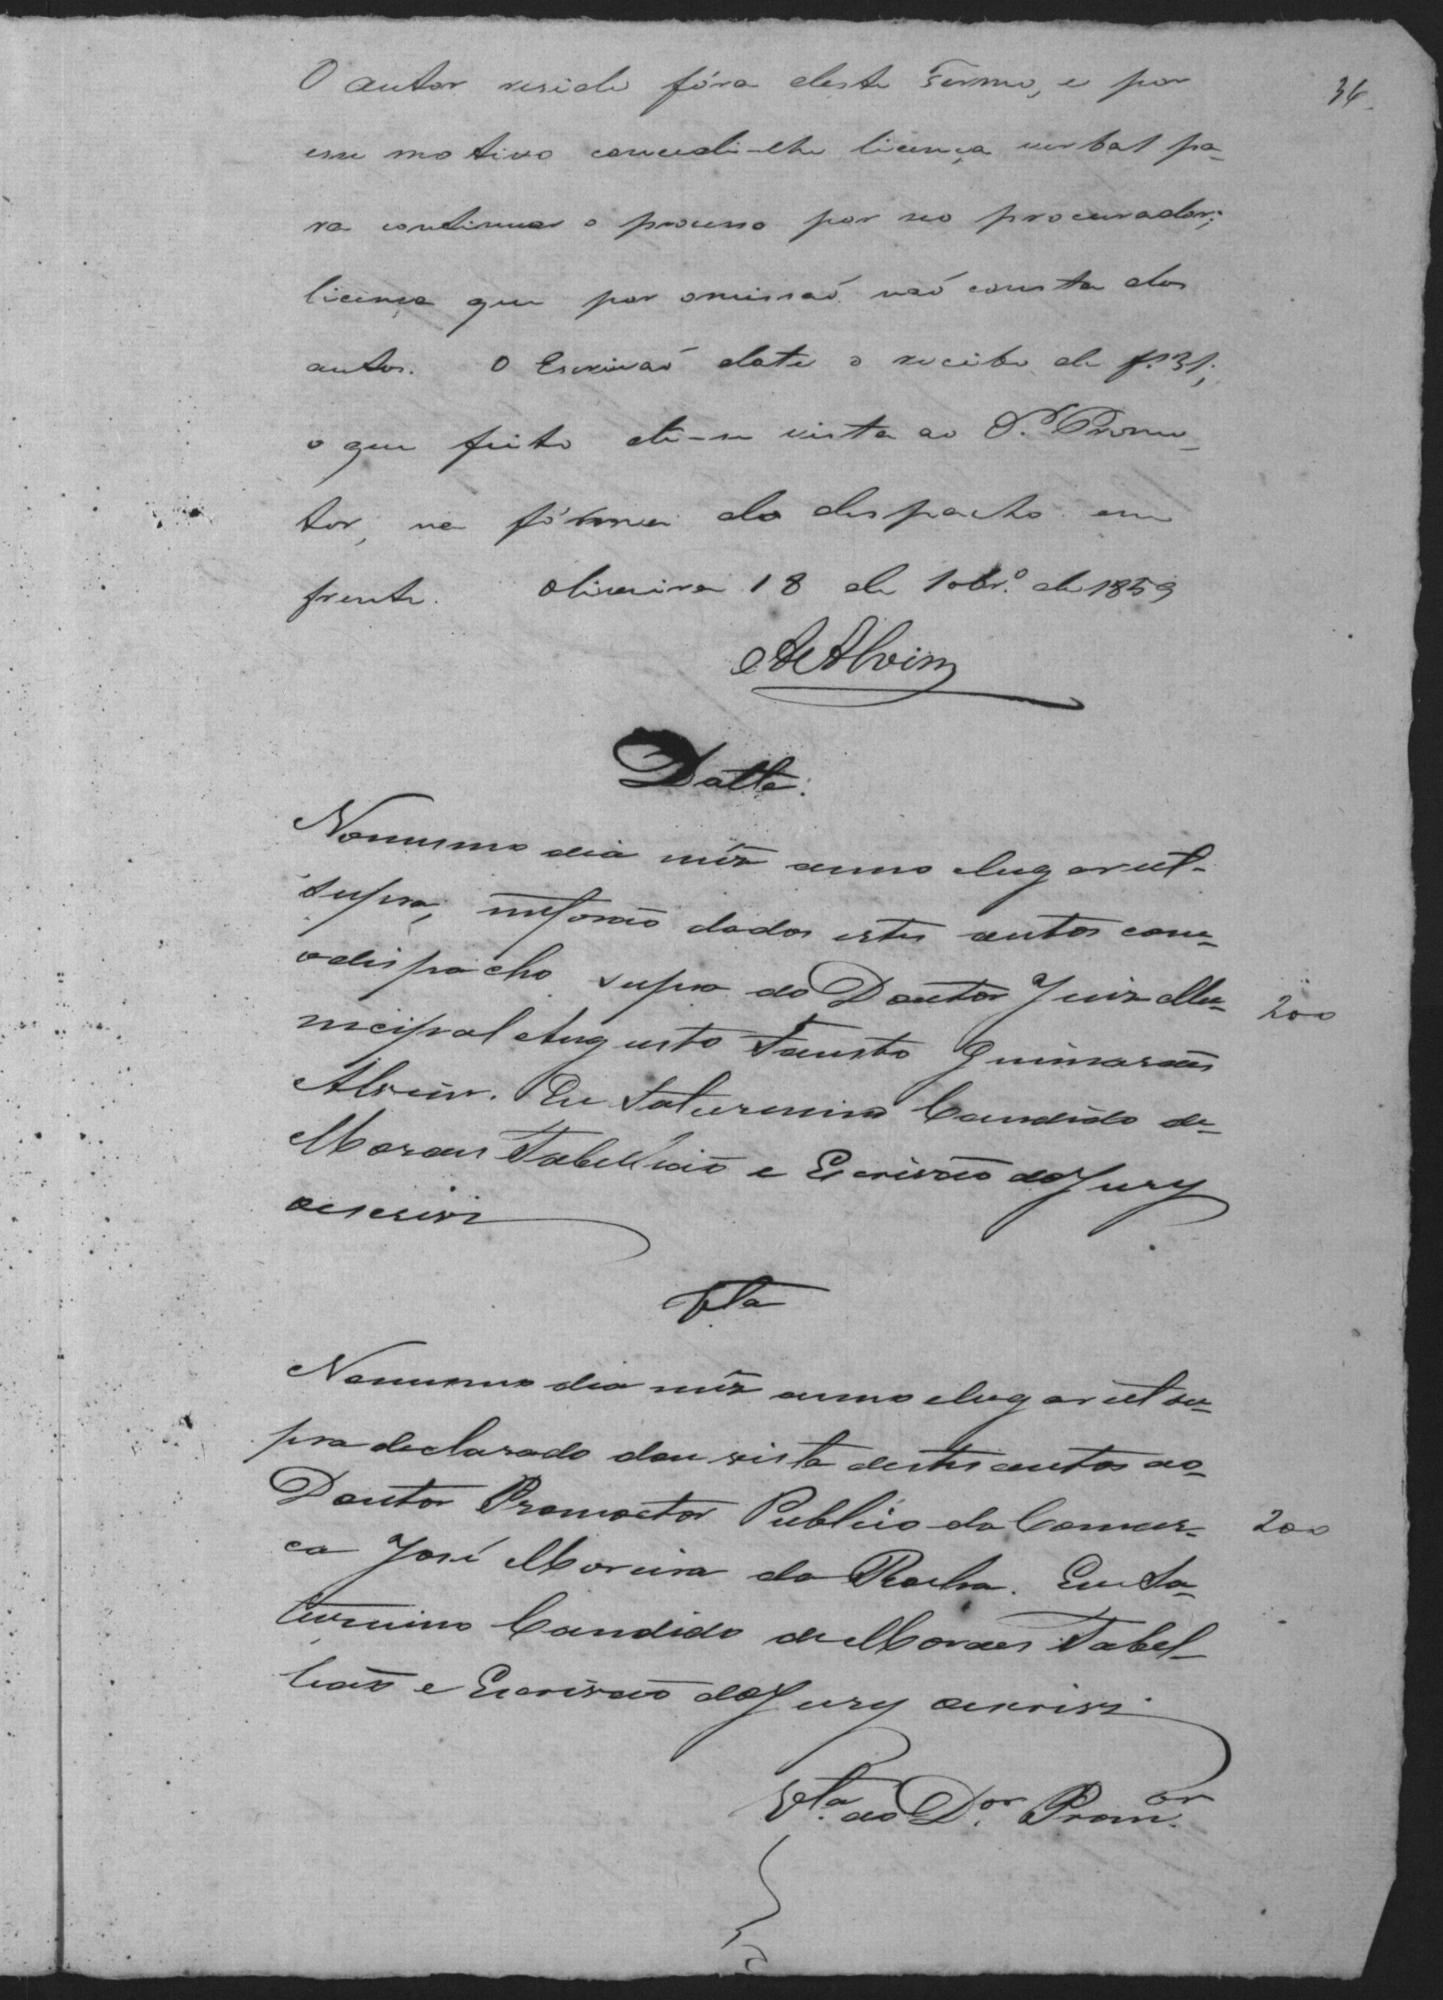 34
O autor reside fóra deste Termo, e por
esse motivo concedi-lhe licença verbal pa-
ra continuar o processo por seo procurador;
licença que por omissaõ naõ consta dos
autos. O Escrivaõ date o recibo de f. 31;
o que feito dê-se vista ao Dr. Promo-
tor, na fórma do despacho em
frente. Oliveira 18 de 10br.º de 1859
Alvim
Datta.
Nomesmo dia mêz anno elugar ut-
supra, meforão dados estes autos com-
odispacho supra do Doutor Juiz Mu-
nicipal Augusto Fausto Guimarães
200
Alvim. Eu Saturnino Candido de-
Moraes Tabellião e Escrivão do Jury
oescrivi
Vta
Nomesmo dia mêz anno elugar ut su-
pra declarado dou vista destes autos ao-
Doutor Promoctor Publico da Comar-
200
ca José Moreira da Rocha. Eu Sa-
turnino Candido de Moraes Tabel-
lião e Escrivão do Jury oescrivi.
Vta. ao Dor. Promor.